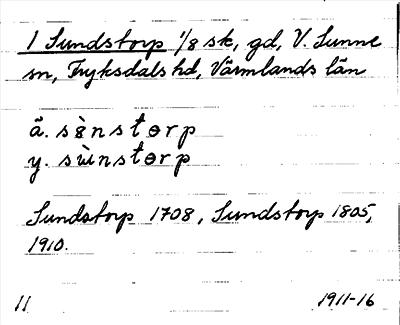 1 Sundstorp 1/8 sk, gd, V. Sunne
sn, Fryksdals hd, Värmlands län
ä. sɵ̀nstɵrp
y. sùnstɵrp
Sundstorp 1708, Sundstorp 1805,
1910.
11 1911-16